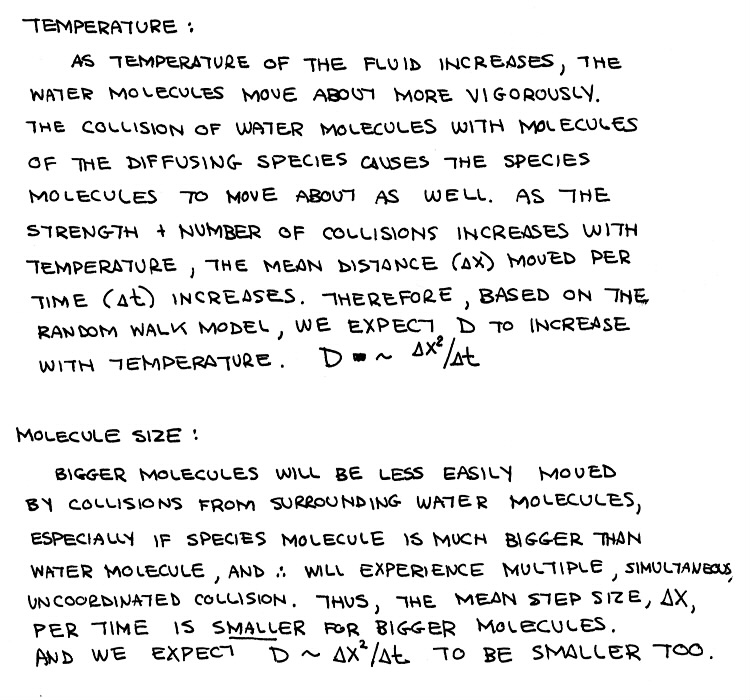 TEMPERATURE :
AS TEMPERATURE OF THE FLUID INCREASES, THE
WATER MOLECULES MOVE ABOUT MORE VIGOROUSLY.
THE COLLISION OF WATER MOLECULES WITH MOLECULES
OF THE DIFFUSING SPECIES CAUSES THE SPECIES
MOLECULES TO MOVE ABOUT AS WELL. AS THE
STRENGTH + NUMBER OF COLLISIONS INCREASES WITH
TEMPERATURE, THE MEAN DISTANCE (ΔX) MOVED PER
TIME (Δt) INCREASES. THEREFORE, BASED ON THE
RANDOM WALK MODEL, WE EXPECT D TO INCREASE
WITH TEMPERATURE. D ~ ΔX²/Δt
MOLECULE SIZE :
BIGGER MOLECULES WILL BE LESS EASILY MOVED
BY COLLISIONS FROM SURROUNDING WATER MOLECULES,
ESPECIALLY IF SPECIES MOLECULE IS MUCH BIGGER THAN
WATER MOLECULE, AND ∴ WILL EXPERIENCE MULTIPLE, SIMULTANEOUS,
UNCOORDINATED COLLISION. THUS, THE MEAN STEP SIZE, ΔX,
PER TIME IS SMALLER FOR BIGGER MOLECULES.
AND WE EXPECT D ~ ΔX²/Δt TO BE SMALLER TOO.